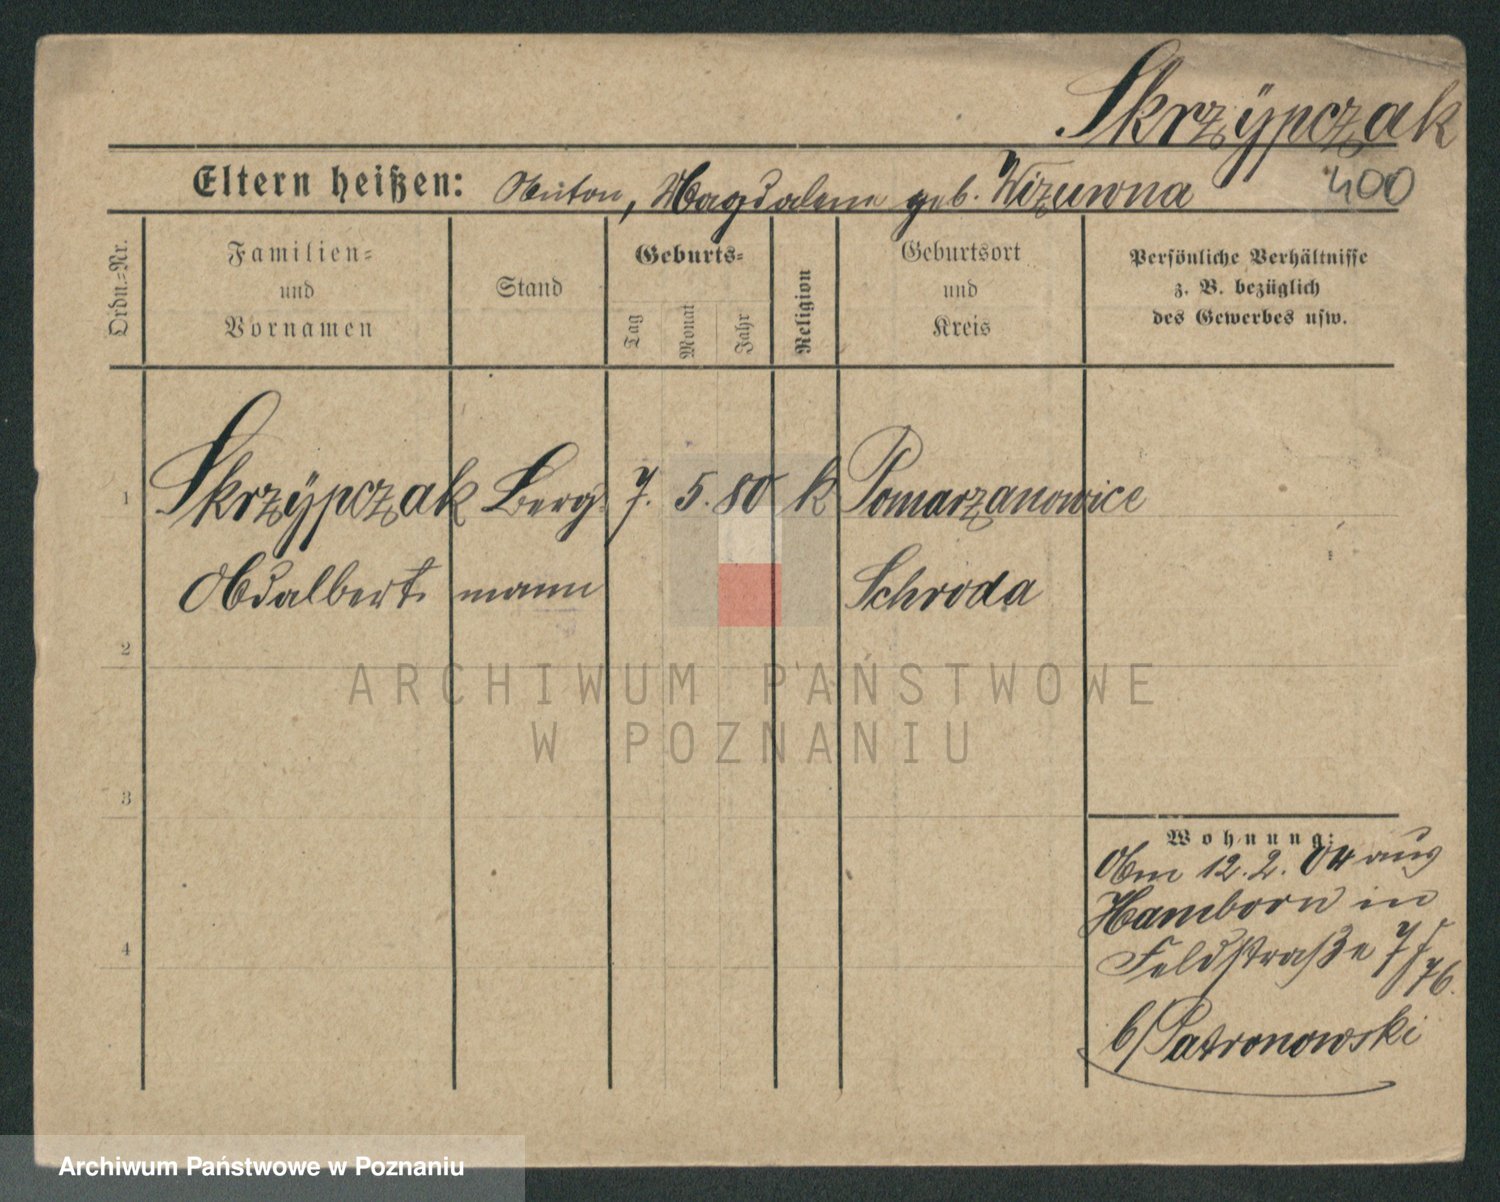 Skrzÿpczak
Eltern heißen: Anton, Magdalena geb. Wizuwna 400
Ordn.=Nr.
Familien=
und
Vornamen
Stand
Geburts=
Tag
Monat
Jahr
Religion
Geburtsort
und
Kreis
Persönliche Verhältnisse
z. B. bezüglich
des Gewerbes usw.
1 Skrzÿpczak Berg 7. 5. 80 k Pomarzanowice
Adalbert mann Schroda
2
3
4
Wohnung:
Am 12.2.04 aus
Hamborn in
Feldstraße
76.
b/Patronowski
ARCHIWUM PAŃSTWOWE
W POZNANIU
Archiwum Państwowe w Poznaniu